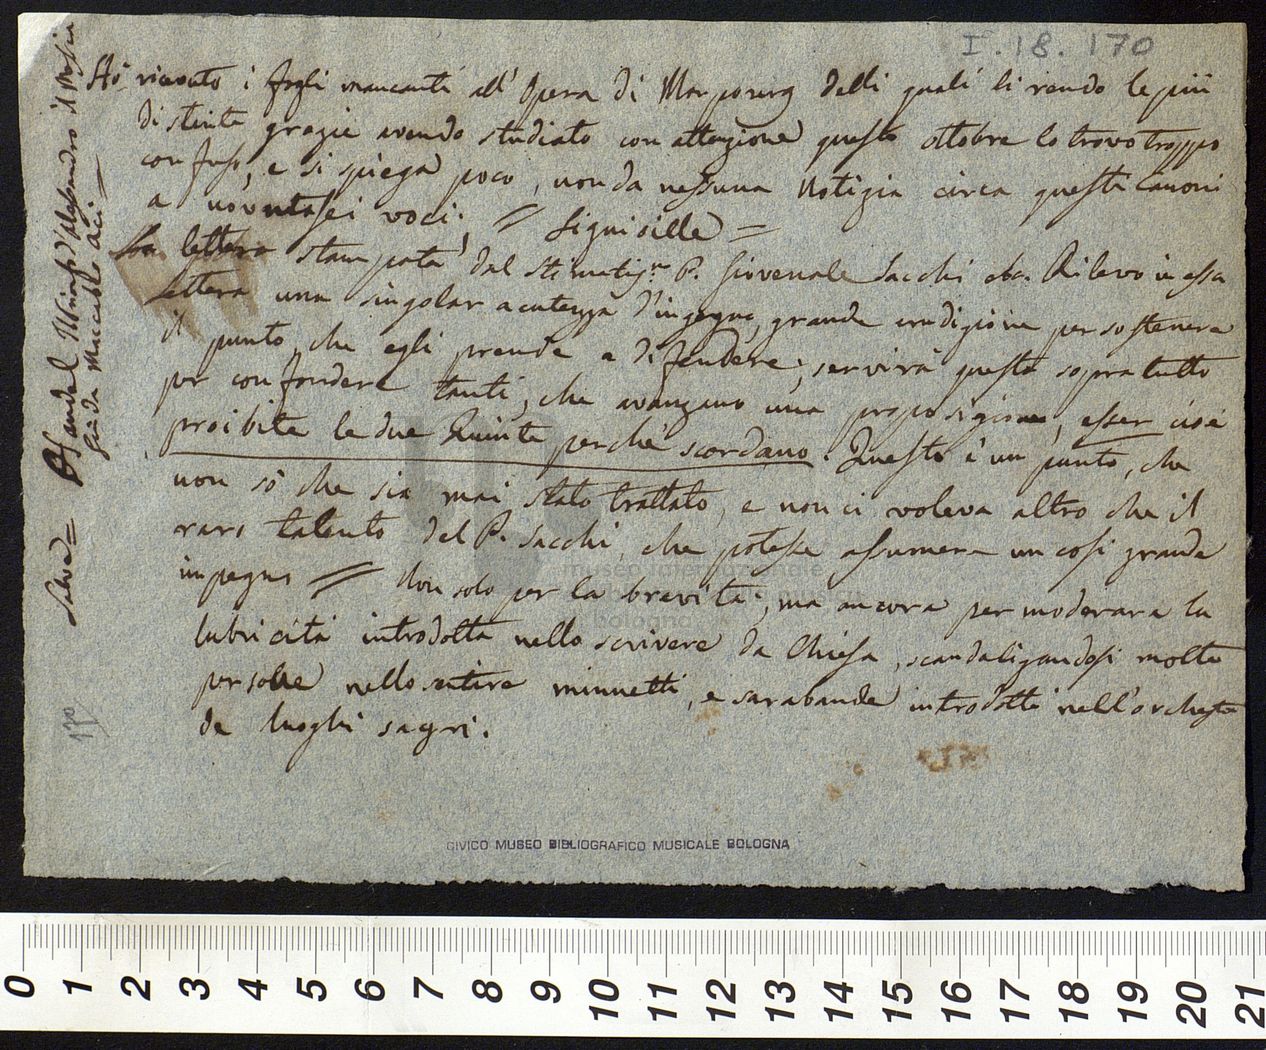 I. 18. 170
Hò ricevuto i fogli mancanti all' Opera di Marpourg delli quali li rendo le più
distinte grazie avendo studiato con attenzione questo ottobre lo trovo troppo
confuso, e si spiega poco, non da nessuna Notizia circa questi Canoni
a novantasei voci; = =
La lettera stampata dal P. Giovenale Sacchi Rilevo in essa
lettera una singolar acutezza d'ingegno, grande erudizione per sostenere
il punto, che egli prende a difendere; servirà questa sopra tutto
per confondere tanti, che avanzano una proposizione, esser cioè
proibite le due Quinte perchè scordano. Questo è un punto, che
non sò che sia mai stato trattato, e non ci voleva altro che il
raro talento del P. Sacchi, che potesse assumere un così grande
impegno = Non solo per la brevità, ma ancora per moderare la
lubricità introdotta nello scrivere da Chiesa, scandalizandosi molte
persone nello sentire minuetti, e sarabande introdotti nell'orchestre
de luoghi sagri.
170
CIVICO MUSEO BIBLIOGRAFICO MUSICALE BOLOGNA
museo internazionale
bologna
0 1 2 3 4 5 6 7 8 9 10 11 12 13 14 15 16 17 18 19 20 21